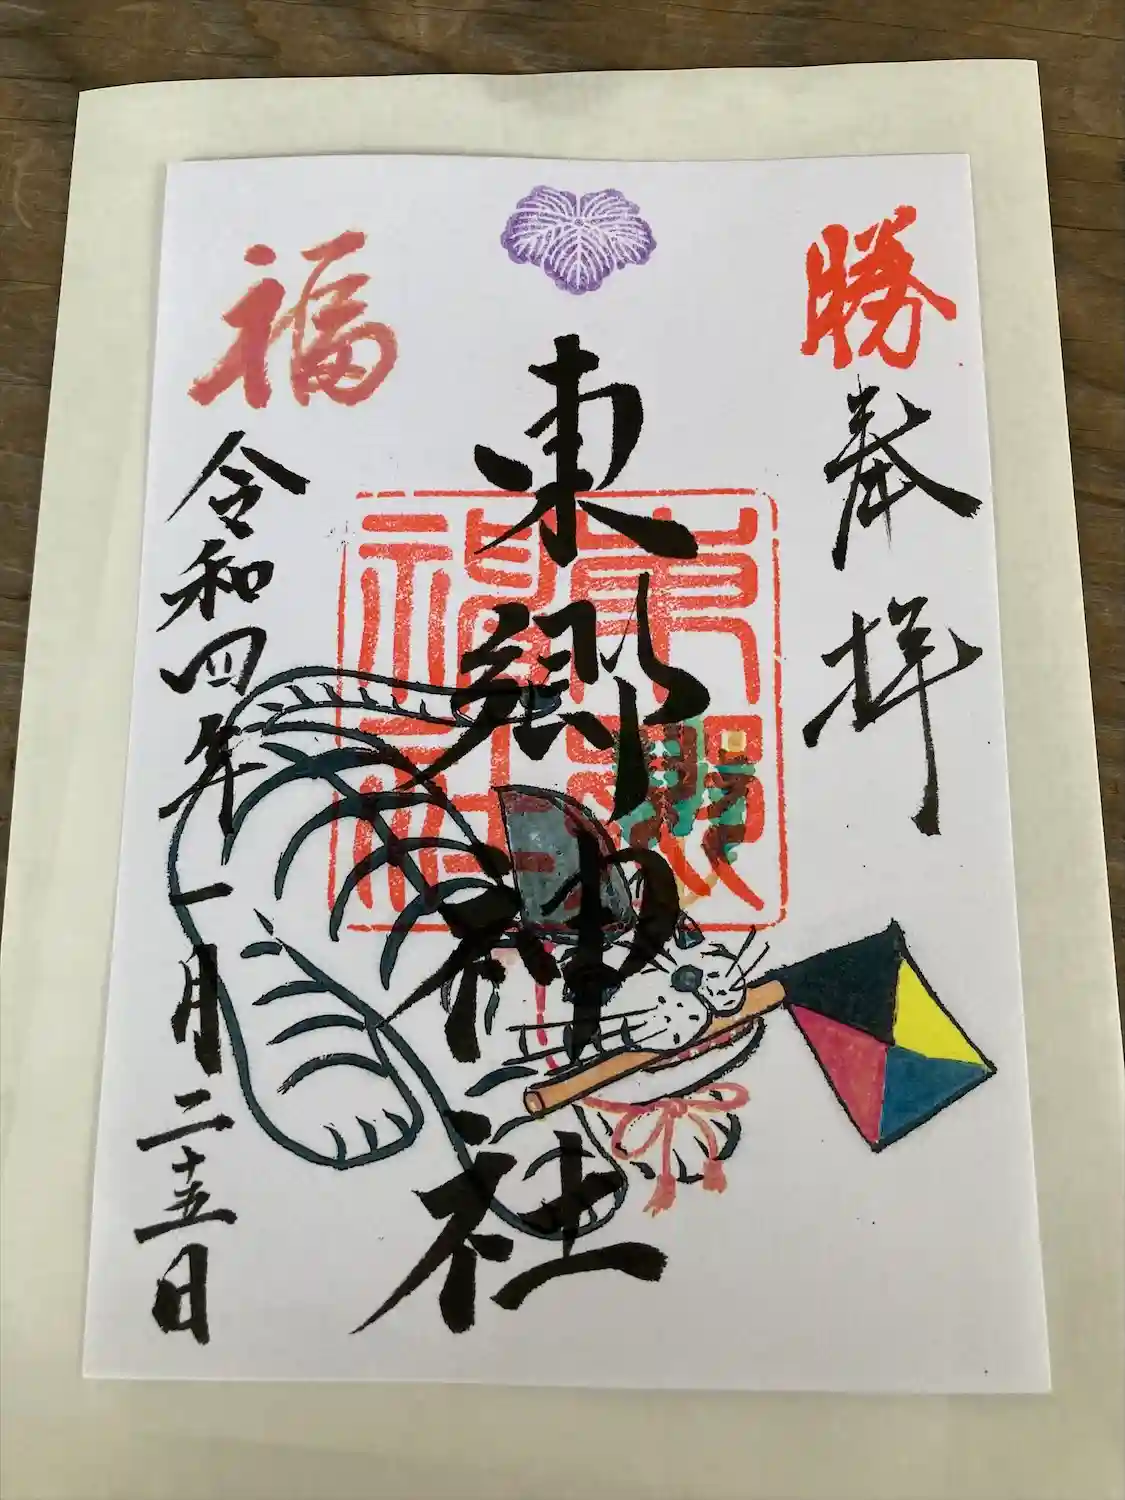 勝
奉拝
東郷神社
東郷神社
福
令和四年一月二十五日